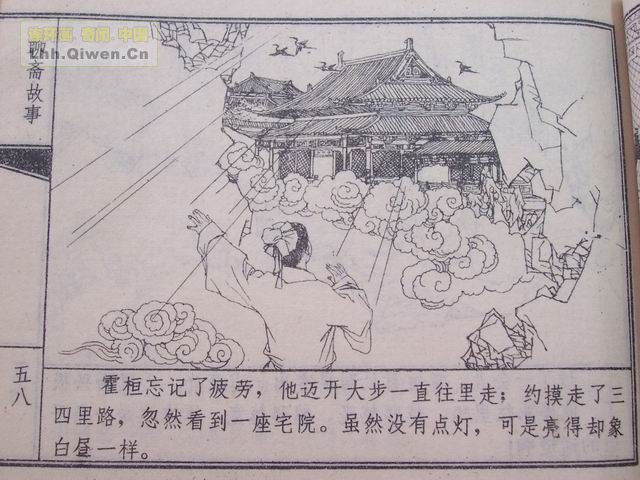 连环画·奇闻·中国
Lhh.Qiwen.Cn
聊斋故事
五八
霍桓忘记了疲劳，他迈开大步一直往里走；约摸走了三
四里路，忽然看到一座宅院。虽然没有点灯，可是亮得却象
白昼一样。